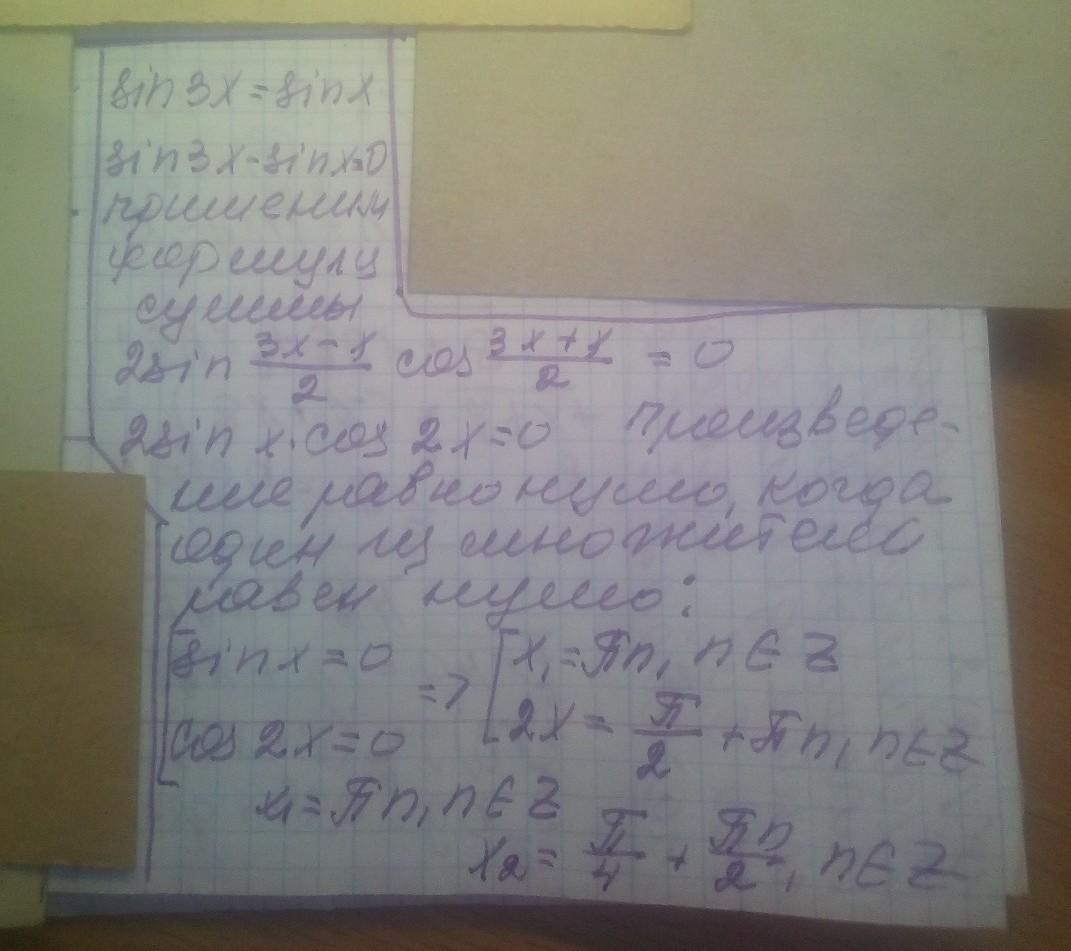 sin3x=sinx
sin3x-sinx=0
применим
формулу
суммы
2sin (3x-x)/2 cos (3x+x)/2 = 0
2sin x·cos 2x=0 Произведе-
ние равно нулю, когда
один из множителей
равен нулю:
[sinx=0 => [x₁=πn, n∈Z
[cos2x=0 [2x= π/2 +πn, n∈Z
x₁=πn, n∈Z
x₂= π/4 + πn/2, n∈Z